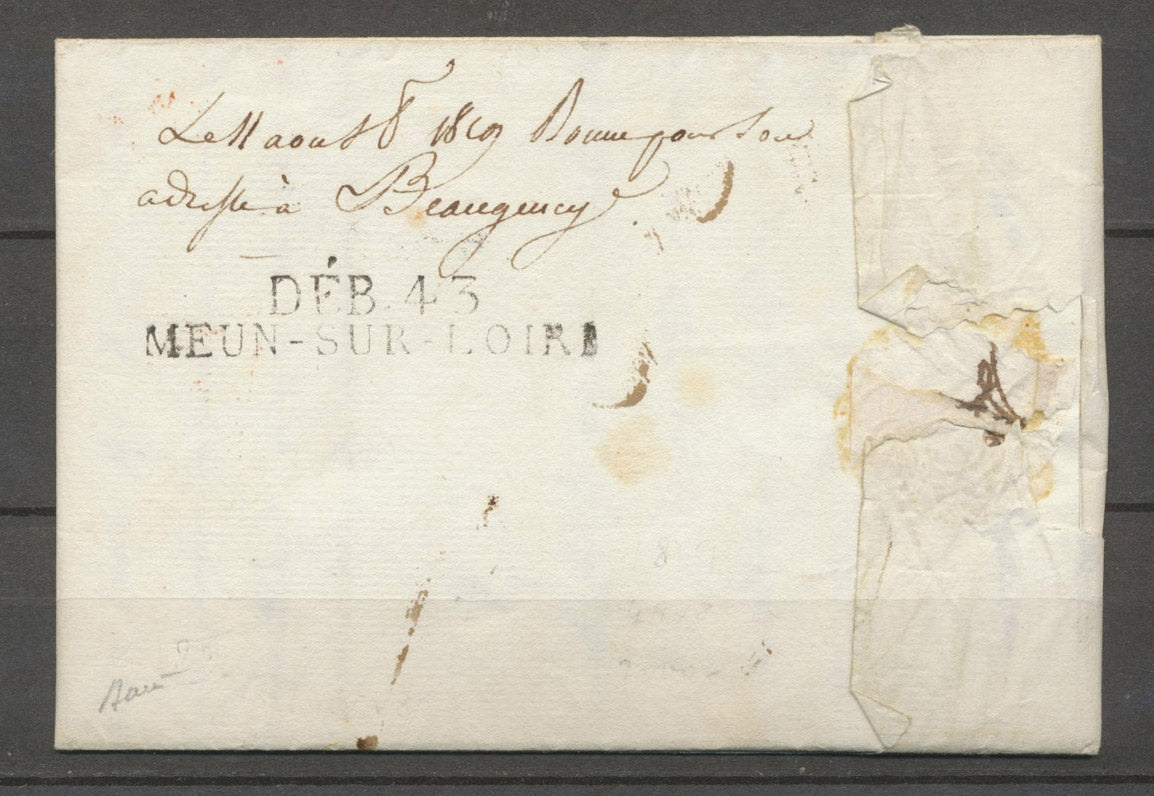 Le 11 aout 1809 Bonne pour son
adresse à Beaugency
DÉB. 43
MEUN-SUR-LOIRE
1809